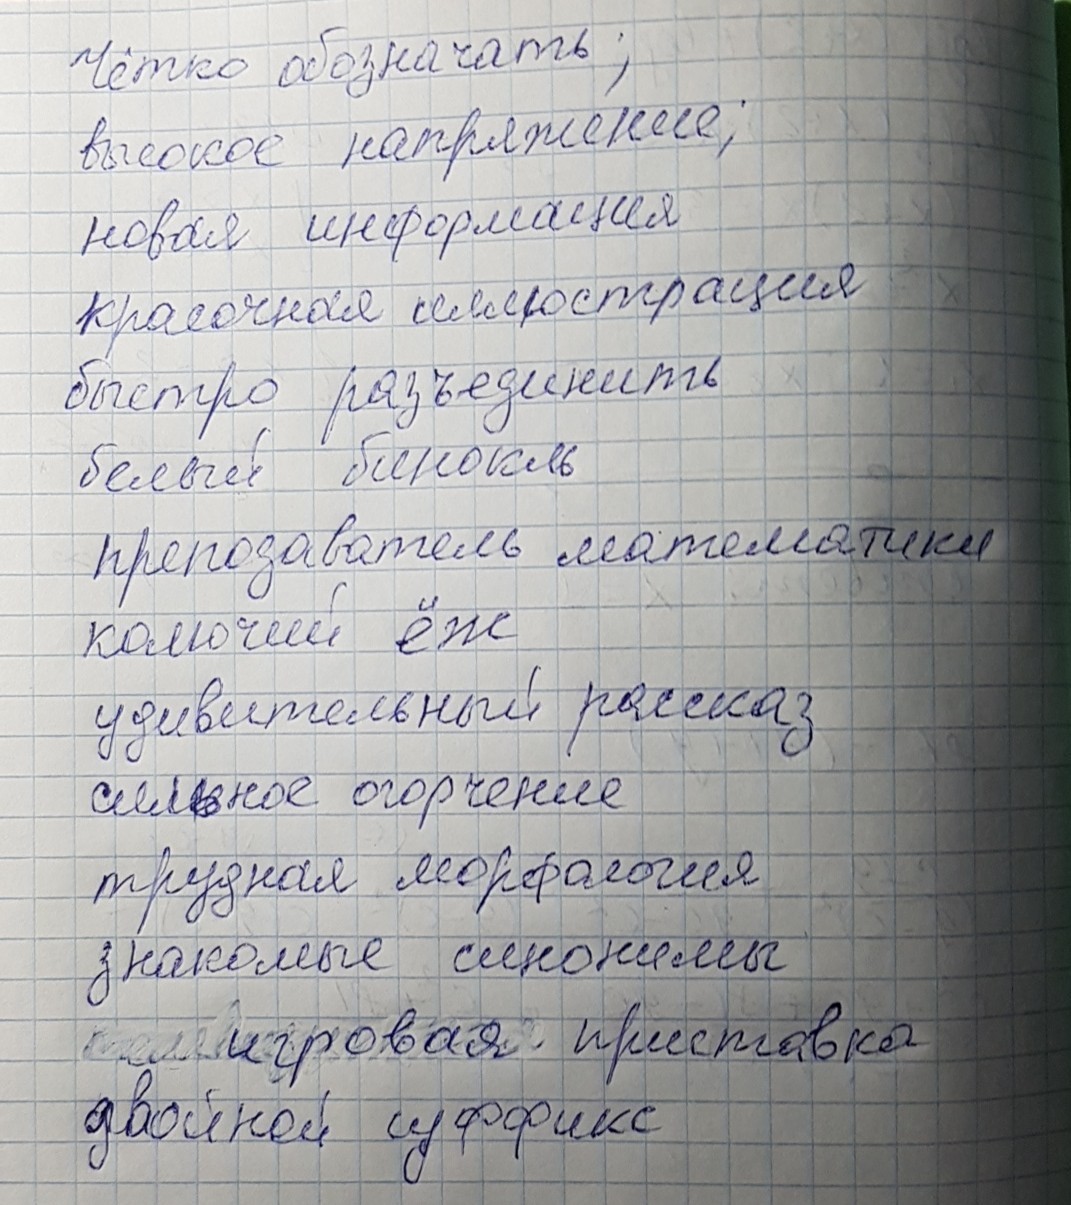 Чётко обозначать;
высокое напряжение;
новая информация
красочная иллюстрация
быстро разъединить
белый бинокль
преподаватель математики
колючий ёж
удивительный рассказ
сильное огорчение
трудная морфология
знакомые синонимы
игровая приставка
двойной суффикс